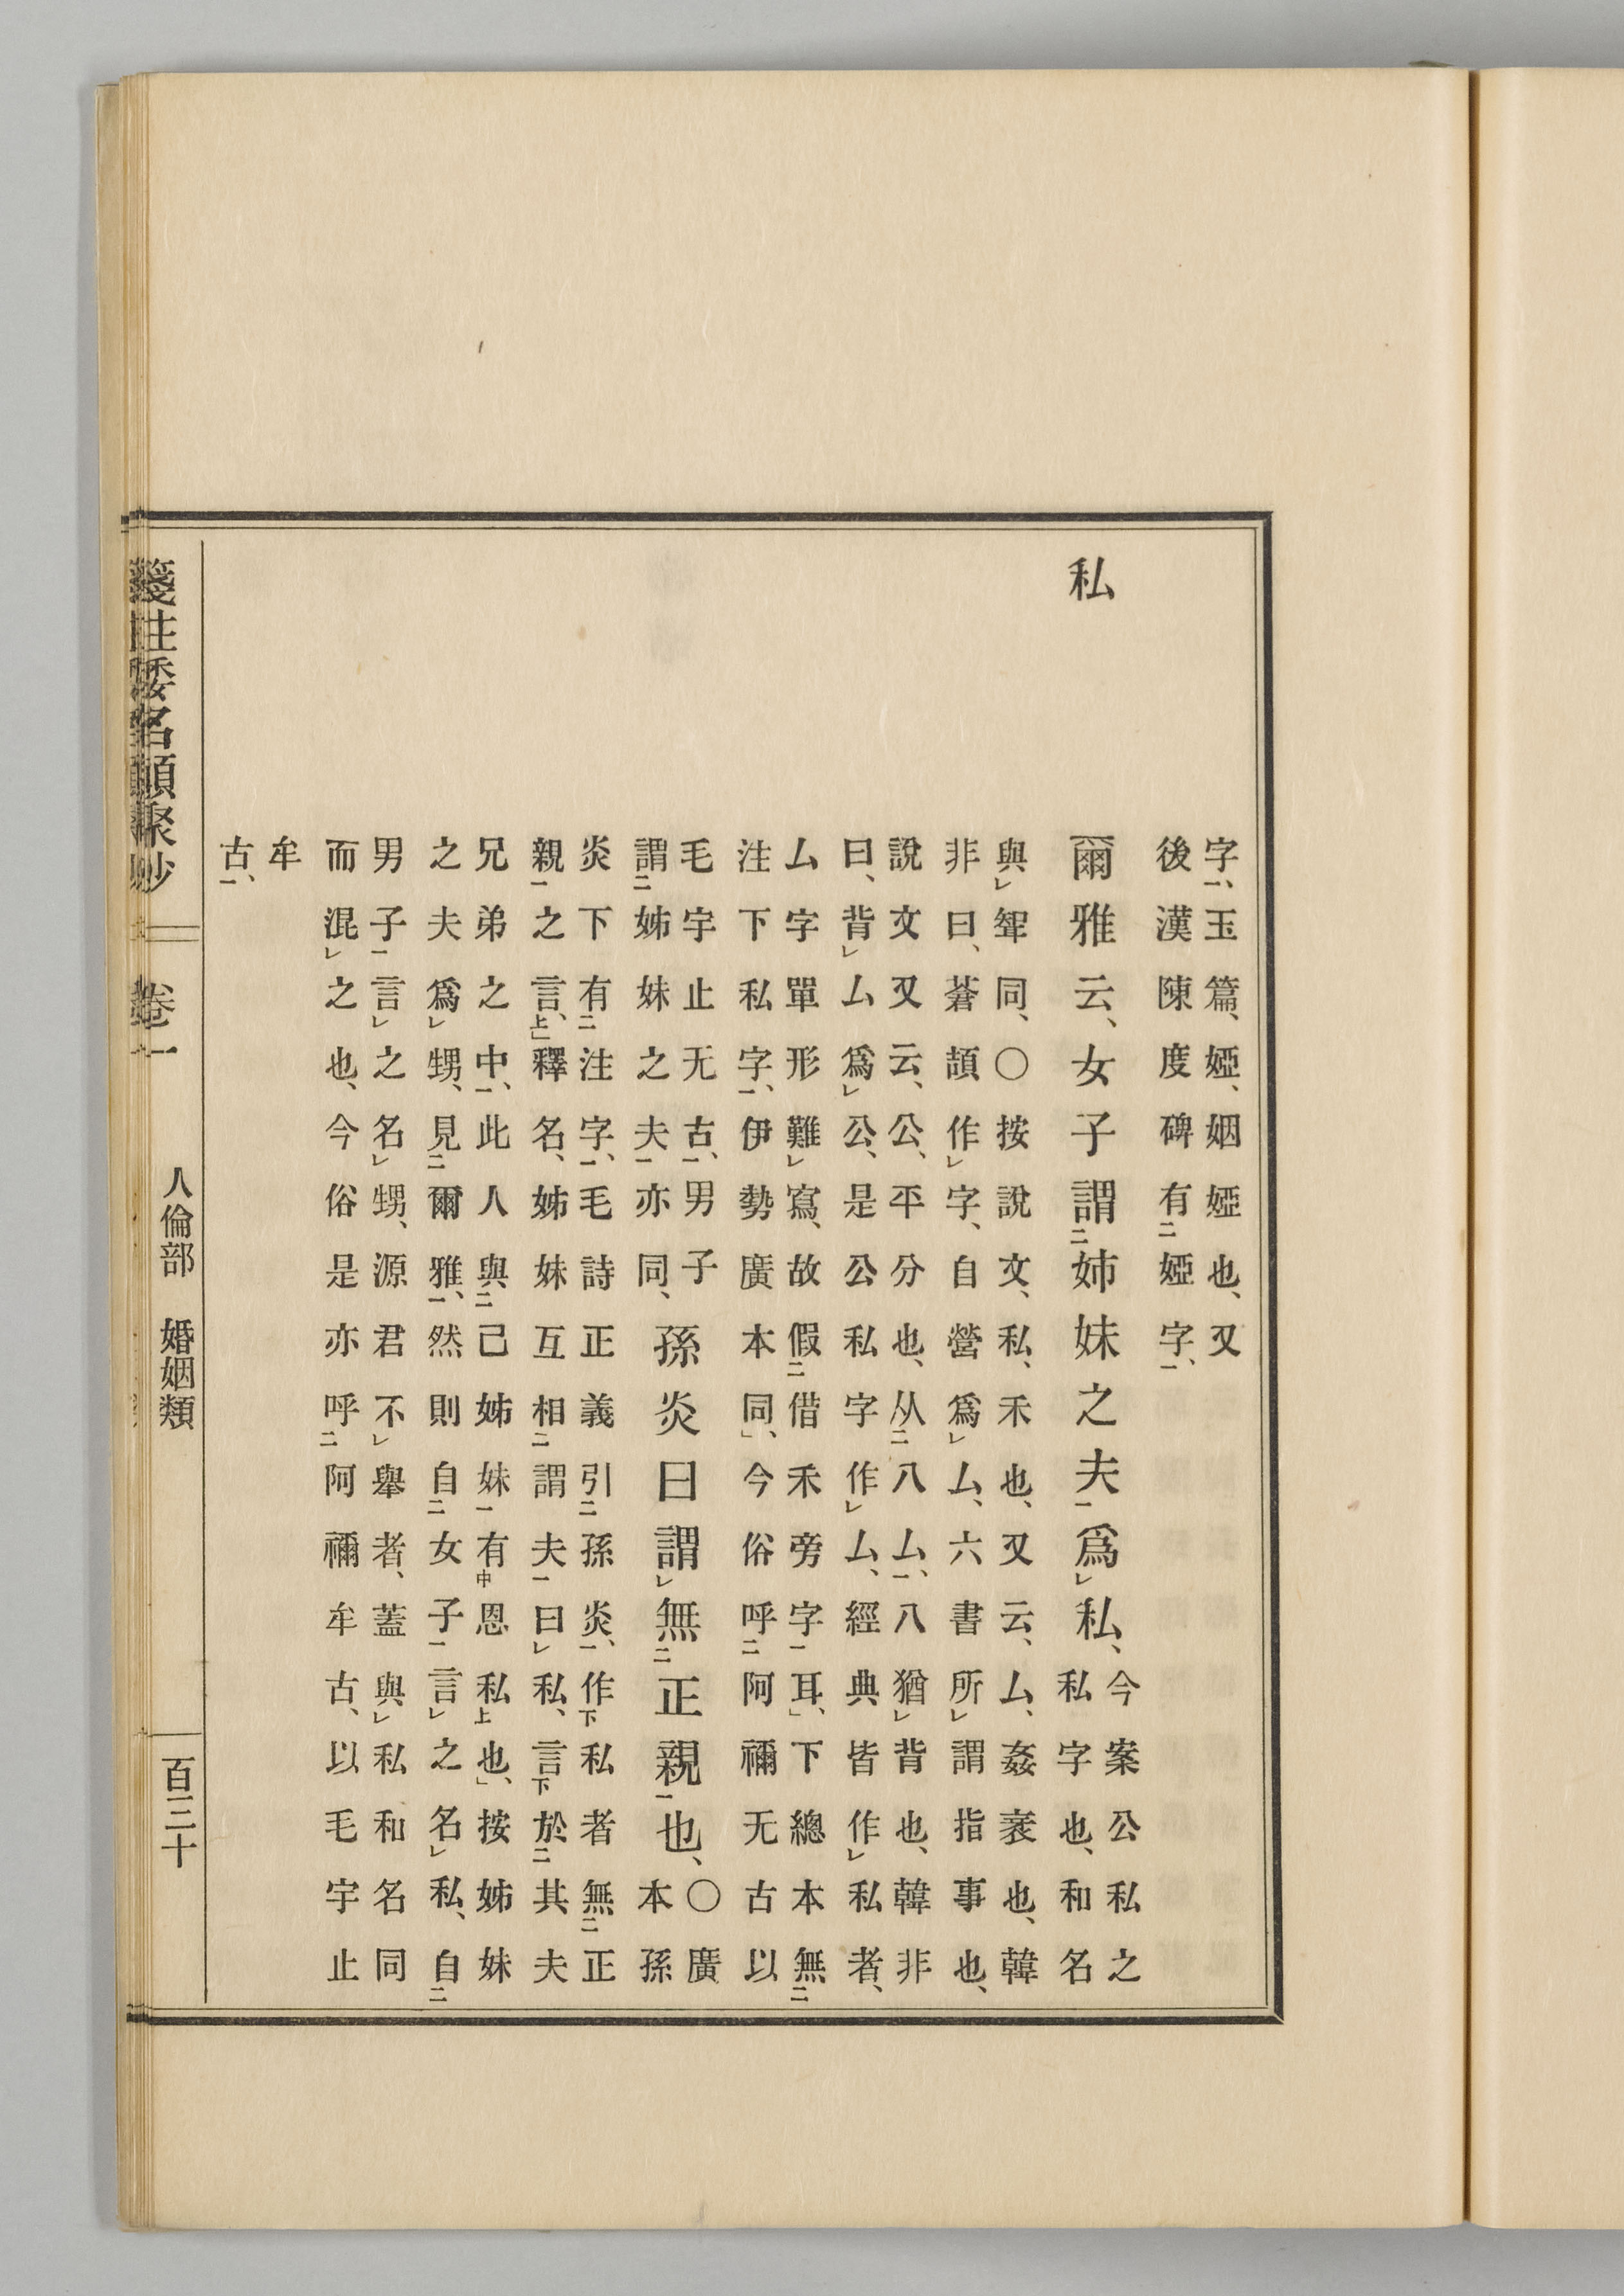 字㆒、玉篇、婭、姻婭也、又
後漢陳度碑有㆓婭字㆒、
私
爾雅云、女子謂㆓姉妹之夫㆒爲㆑私、
今案公私之
私字也、和名
與㆑聟同、〇按說文、私、禾也、又云、厶、姦衺也、韓
非曰、蒼頡作㆑字、自營爲㆑厶、六書所㆑謂指事也、
說文又云、公、平分也、从㆓八厶㆒、八猶㆑背也、韓非
曰、背㆑厶爲㆑公、是公私字作㆑厶、經典皆作㆑私者、
厶字單形難㆑寫、故假㆓借禾旁字㆒耳、」下總本無㆓
注下私字㆒、伊勢廣本同、」今俗呼㆓阿禰无古以
毛宇止无古㆒、男子
謂㆓姊妹之夫㆒亦同、
孫炎曰謂㆑無㆓正親㆒也、
〇廣
本孫
炎下有㆓注字㆒、毛詩正義引㆓孫炎㆒、作㆘私者無㆓正
親㆒之言㆖、」釋名、姊妹互相㆓謂夫㆒曰㆑私、言㆘於㆓其夫
兄弟之中㆒、此人與㆓己姊妹㆒有㆗恩私㆖也、」按姊妹
之夫爲㆑甥、見㆓爾雅㆒、然則自㆓女子㆒言㆑之名㆑私、自㆓
男子㆒言㆑之名㆑甥、源君不㆑舉者、蓋與㆑私和名同
而混㆑之也、今俗是亦呼㆓阿禰牟古、以毛宇止
牟
古㆒、
箋註倭名類聚抄 卷一 人倫部 婚姻類 百三十